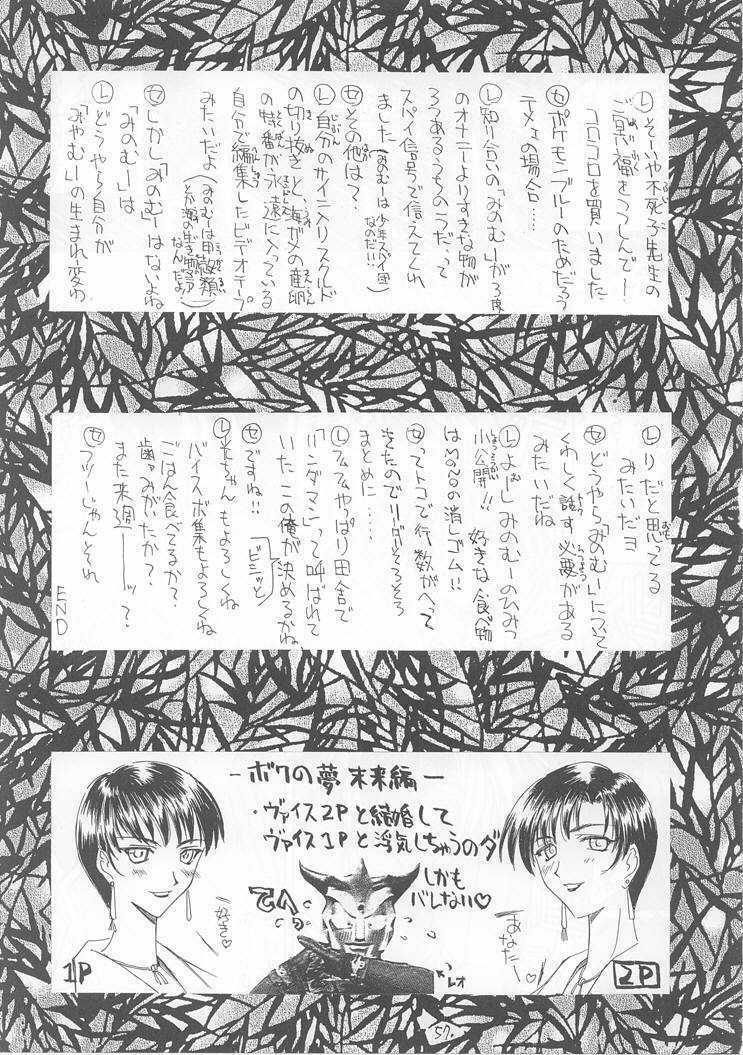 Ⓛそーいや不死子先生の
ご冥福をつつしんでー
コロコロを買いました
㋝ポケモンブルーのためだろう
テメェの場合……
Ⓛ知り合いの「みのむー」が3度
のオナニーよりすきな物が
3つあるうちの1つだって
スパイ信号で伝えてくれ
ました(みのむーは少年スパイ団なのだ!!)
㋝その他は?
Ⓛ自分のサイン入りスクルド
の切り抜きと、海ガメの産卵
の特番がえい遠に入っている
自分で編集したビデオテープ
みたいだよ(みのむーは甲殻類とか海の生き物マニアなんだよ)
㋝しかし「みのむー」はないよね
「みのむー」は
Ⓛどうやら自分が
「みやむー」の生まれ変わ
Ⓛりだと思ってる
みたいだヨ
㋝どうやら「みのむー」について
くわしく話す必要がある
みたいだね
Ⓛよーしみのむーのひみつ
小公開!! 好きな食べ物
はMONOの消しゴム!!
㋝ってトコで行数がへって
きたのでリーダーそろそろ
まとめに……
Ⓛフムフムやっぱり田舎で
「パンダマン」って叫ばれて
いた この俺が決めるがね
㋝ですね!! ビシッと
Ⓛそちゃんもよろしくね
バイスボ集もよろしくね
ごはん食べてるか?
歯ッみがたか?
また来週——ッ?
㋝フツーじゃんそれ
END
-ボクの夢 未来編-
・ヴァイス2Pと結婚して
ヴァイス1Pと浮気しちゃうのダ
しかも
バレない♡
てへ
好き♡
あなたー♡
レオ
1P
2P
57.